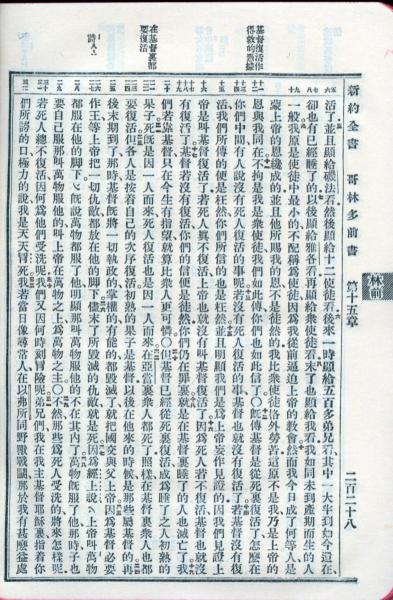 新約全書 哥林多前書 第十五章 二百二十八
林前
基督復活作
得救的憑據
在基督裏都
要復活
詩八
活了並且顯給磯法看然後顯給十二使徒看後來一時顯給五百多弟兄看其中一大半到如今還在
卻也有已經睡了的以後顯給雅各看再顯給衆使徒看末了也顯給我看我如同未到產期而生的人
一般我原是使徒中最小的不配稱爲使徒因爲我從前逼迫上帝的教會然而我今日成了何等人是
蒙上帝的恩纔成的並且他所賜我的恩不是徒然的我比衆使徒格外勞苦這原不是我乃是上帝的
恩與我同在不拘是我是衆使徒我們如此傳你們也如此信了○旣傳基督是從死裏復活了怎麼在
你們中間有人說沒有死人復活的事呢若沒有死人復活的事基督也就沒有復活了若基督沒有復
活我們所傳的便是枉然你們所信的也是枉然並且明顯我們是爲上帝妄作見證的因我們見證上
帝是叫基督復活了若死人眞不復活上帝也就沒有叫基督復活了因爲死人若不復活基督也就沒
有復活了基督若沒有復活你們的信便是徒然你們仍在罪裏就是在基督裏睡了的人也滅亡了我
們若靠基督只在今生有指望就算比衆人更可憐○但基督已經從死裏復活成爲睡了之人初熟的
果子死旣是因一人而來死人復活也是因一人而來在亞當裏衆人都死了照樣在基督裏衆人也都
要復活但各人是按着自己的次序復活初熟的果子是基督以後在他來的時候是那些屬基督的再
後末期到了那時基督旣將一切執政的掌權的有能的都毀滅了就把國交與父上帝因爲基督必要
作王等上帝把一切仇敵都放在他的腳下儘末了所毀滅的仇敵就是死因爲經上說上帝叫萬物
都服在他的腳下旣說萬物都服了他明顯那叫萬物服他的不在其內了萬物旣服了他那時子也
要自己服那叫萬物服他的叫上帝在萬物之上爲萬物之主○不然那些爲死人受洗的將來怎樣呢
若死人總不復活因何爲他們受洗呢我們又因何時刻冒險呢弟兄們我在我主基督耶穌裏指着你
們所誇的口極力的說我是天天冒死我若當日像尋常人在以弗所同野獸戰鬭那於我有甚麼益處